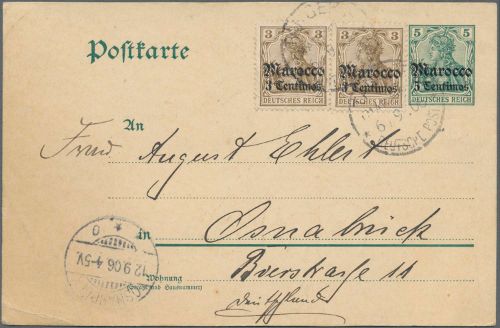 3 3 5
Postkarte
Marocco Marocco Marocco
3 Centimos 3 Centimos 5 Centimos
DEUTSCHES REICH DEUTSCHES REICH DEUTSCHES REICH
6 9
DEUTSCHE POST
An
August Ehlert
in Osnabrück
12.9.06 4-5V.
Wohnung
(Straße und Hausnummer)
Bierstrasse 11
Deutschland